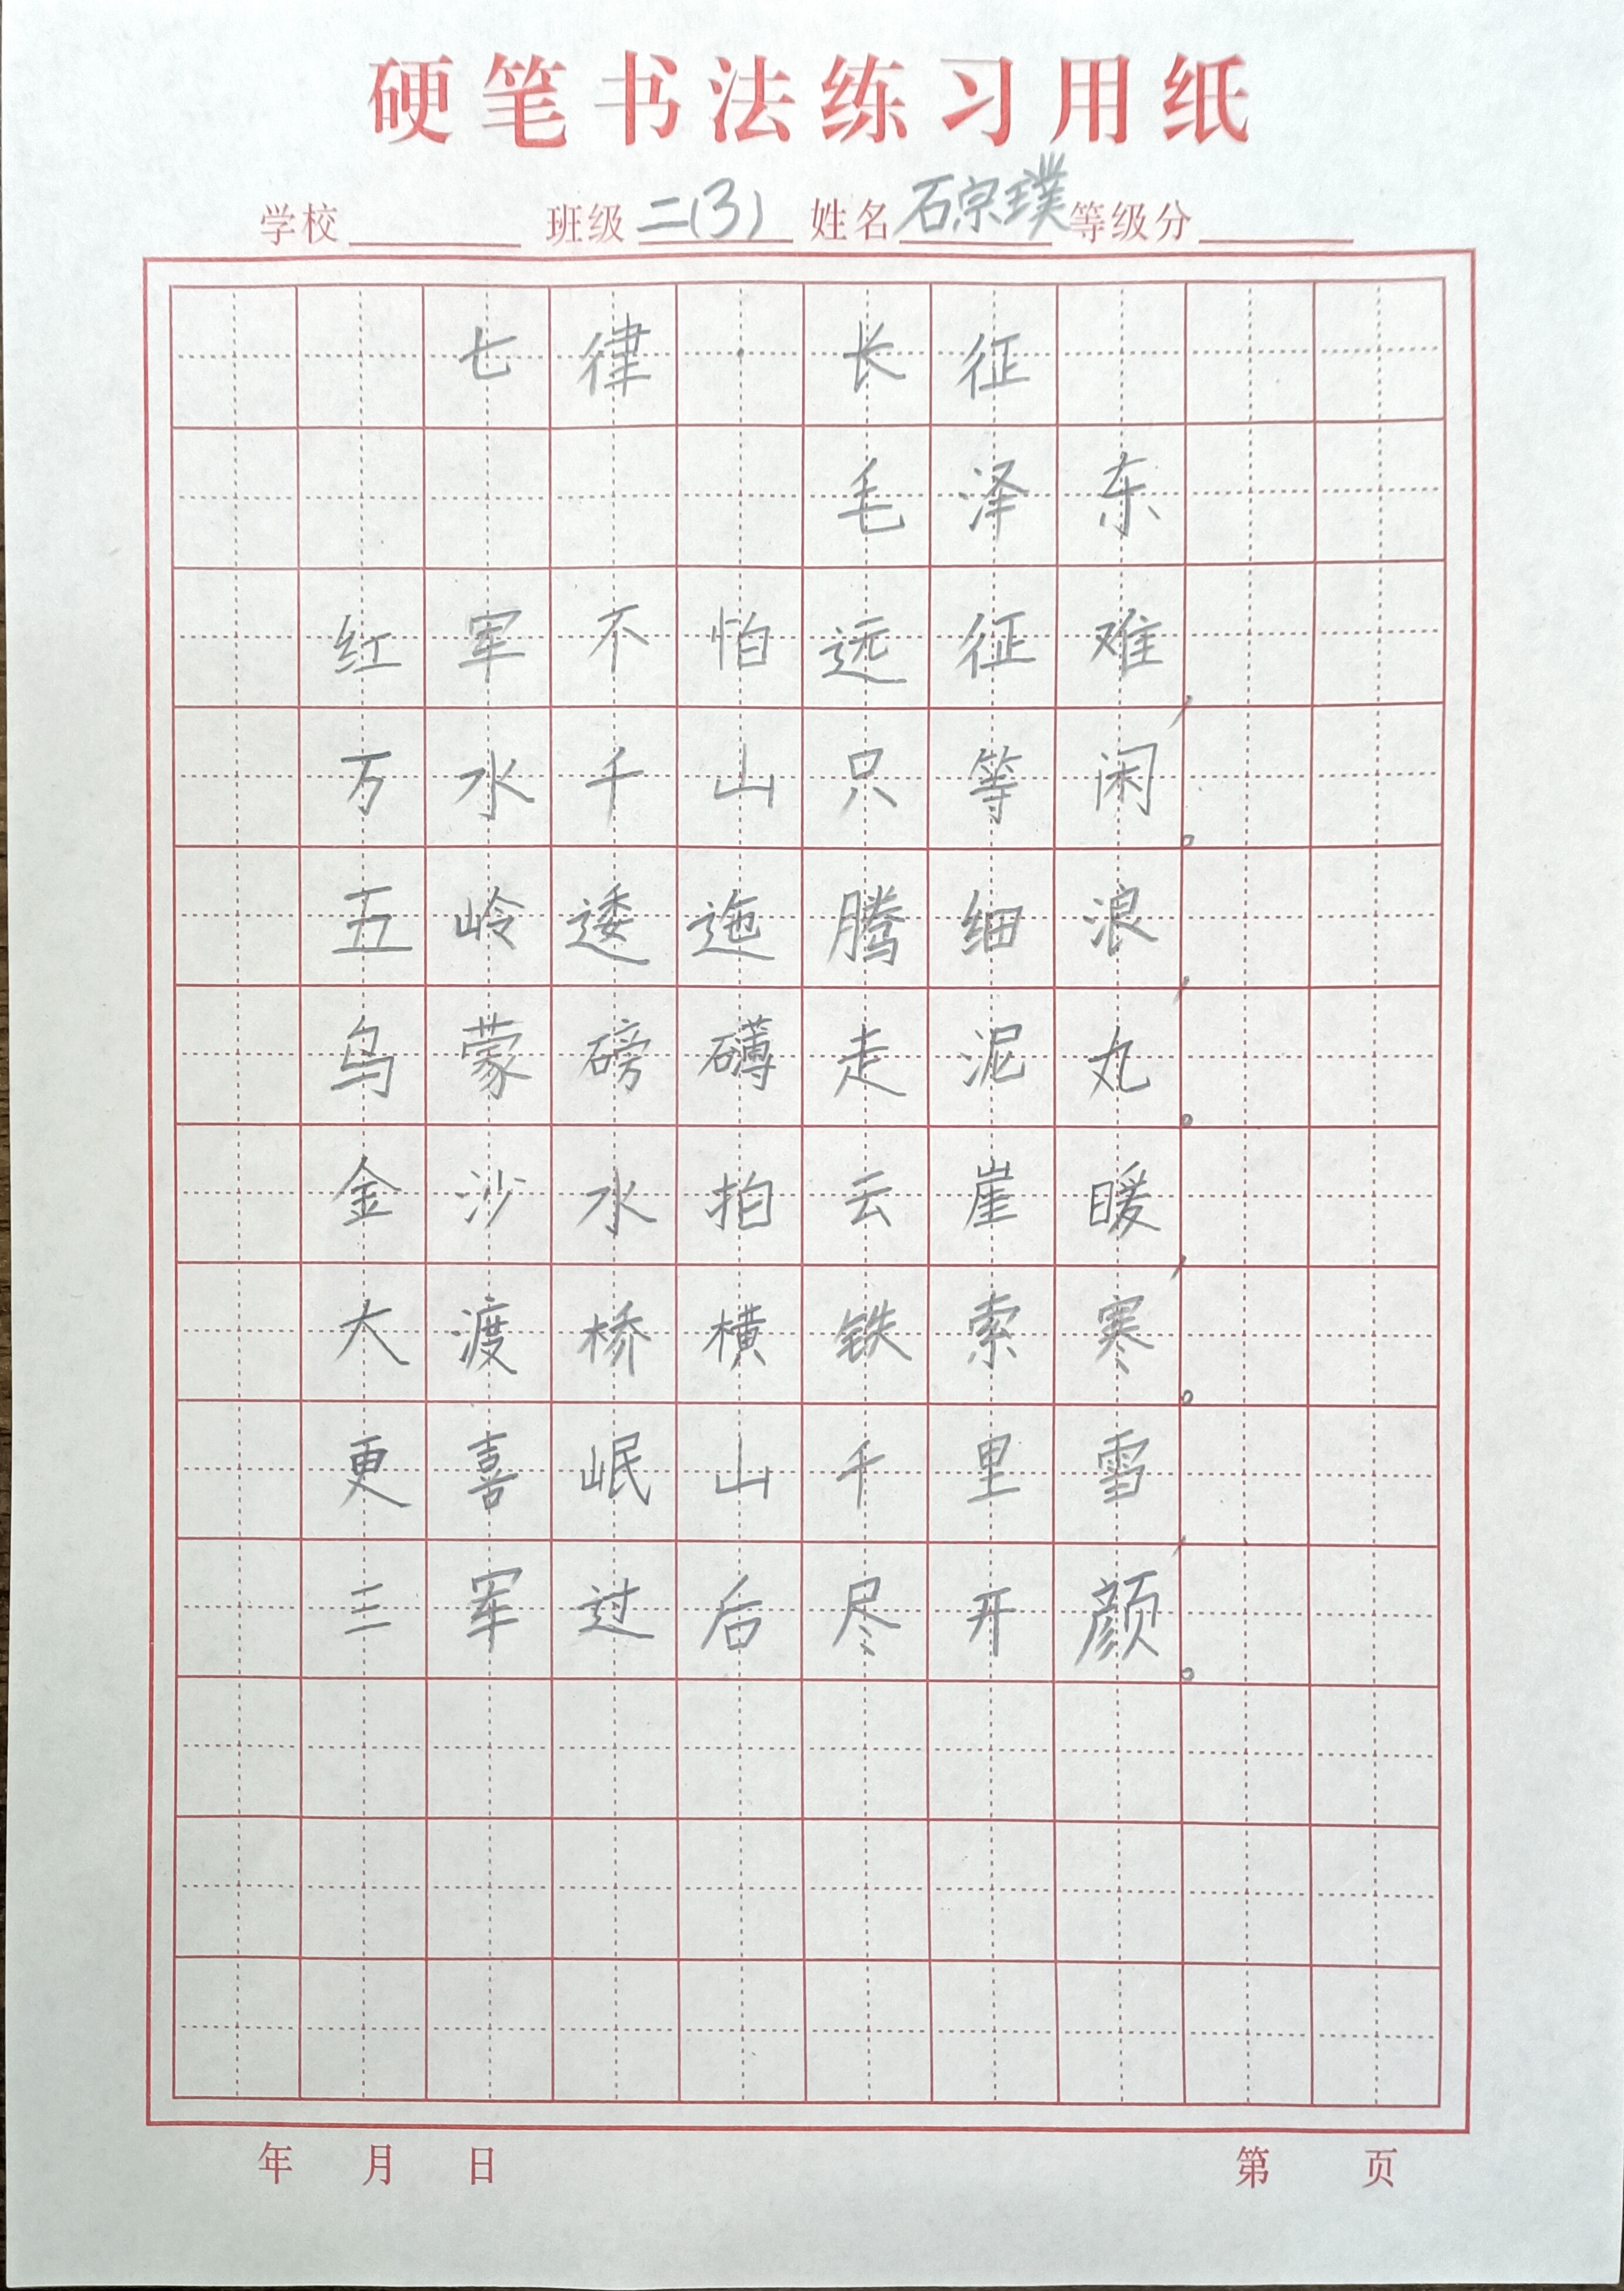 硬笔书法练习用纸
学校 班级 二(3) 姓名 石宗璞 等级分
七律·长征
毛泽东
红军不怕远征难,
万水千山只等闲。
五岭逶迤腾细浪,
乌蒙磅礴走泥丸。
金沙水拍云崖暖,
大渡桥横铁索寒。
更喜岷山千里雪,
三军过后尽开颜。
年 月 日 第 页